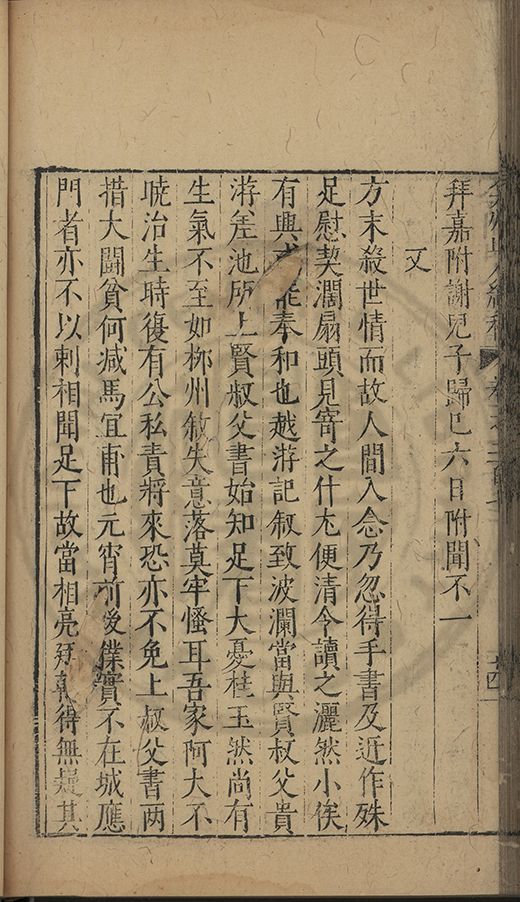 拜嘉附謝兒子歸已六日附聞不一
又
方末殺世情而故人間入念乃忽得手書及近作殊
足慰契濶扇頭見寄之什尤便清令讀之灑然小俟
有興或能奉和也越游記叙致波瀾當與賢叔父貴
游差池所上賢叔父書始知足下大憂桂玉然尚有
生氣不至如柳州敘失意落莫牢慅耳吾家阿大不
琥治生時復有公私責將來恐亦不免上叔父書两
措大鬪貧何減馬宜甫也元宵前後僕實不在城應
門者亦不以剌相聞足下故當相亮 得無 其